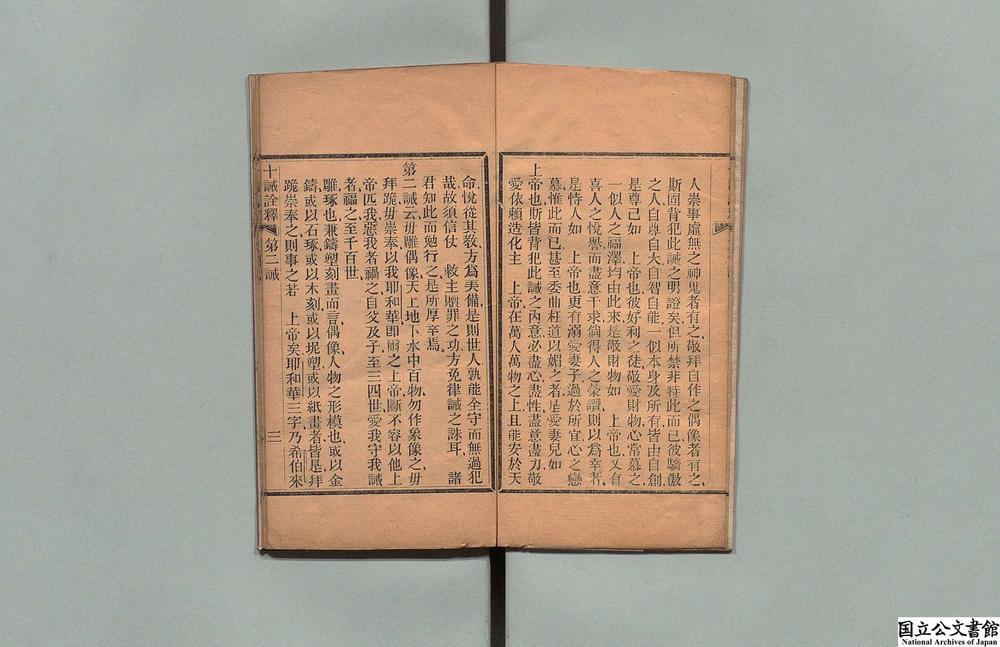 人崇事虛無之神鬼者有之敬拜自作之偶像者有之
斯固背犯此誡之明證矣但所禁非特此而已彼驕傲
之人自尊自大自智自能一似本身及所有皆由自創
是尊己如　上帝也彼好利之徒敬愛財物心常慕之
一似人之福澤均由此來是敬財物如　上帝也又有
喜人之悅譽而盡意干求倘得人之榮讚則以爲幸者
是恃人如　上帝也更有溺愛妻子過於所宜心之戀
慕惟此而已甚至委曲枉道以媚之者是愛妻兒如
上帝也斯皆背犯此誡之內意必盡心盡性盡意盡力敬
愛依賴造化主　上帝在萬人萬物之上且能安於天
命悅從其教方爲美備是則世人孰能全守而無過犯
哉故須信仗　救主贖罪之功方免律誡之誅耳　諸
君知此而勉行之是所厚幸焉
第二誡云毋雕偶像天上地下水中百物勿作象像之毋
拜跪毋崇奉以我耶和華卽爾之上帝斷不容以他上
帝匹我惡我者禍之自父及子至三四世愛我守我誡
者福之至千百世
雕琢也兼鑄塑刻畫而言偶像人物之形模也或以金
鑄或以石琢或以木刻或以坭塑或以紙畫者皆是拜
跪崇奉之則事之若　上帝矣耶和華三字乃希伯來
十誡詮釋　第二誡　三
国立公文書館
National Archives of Japan